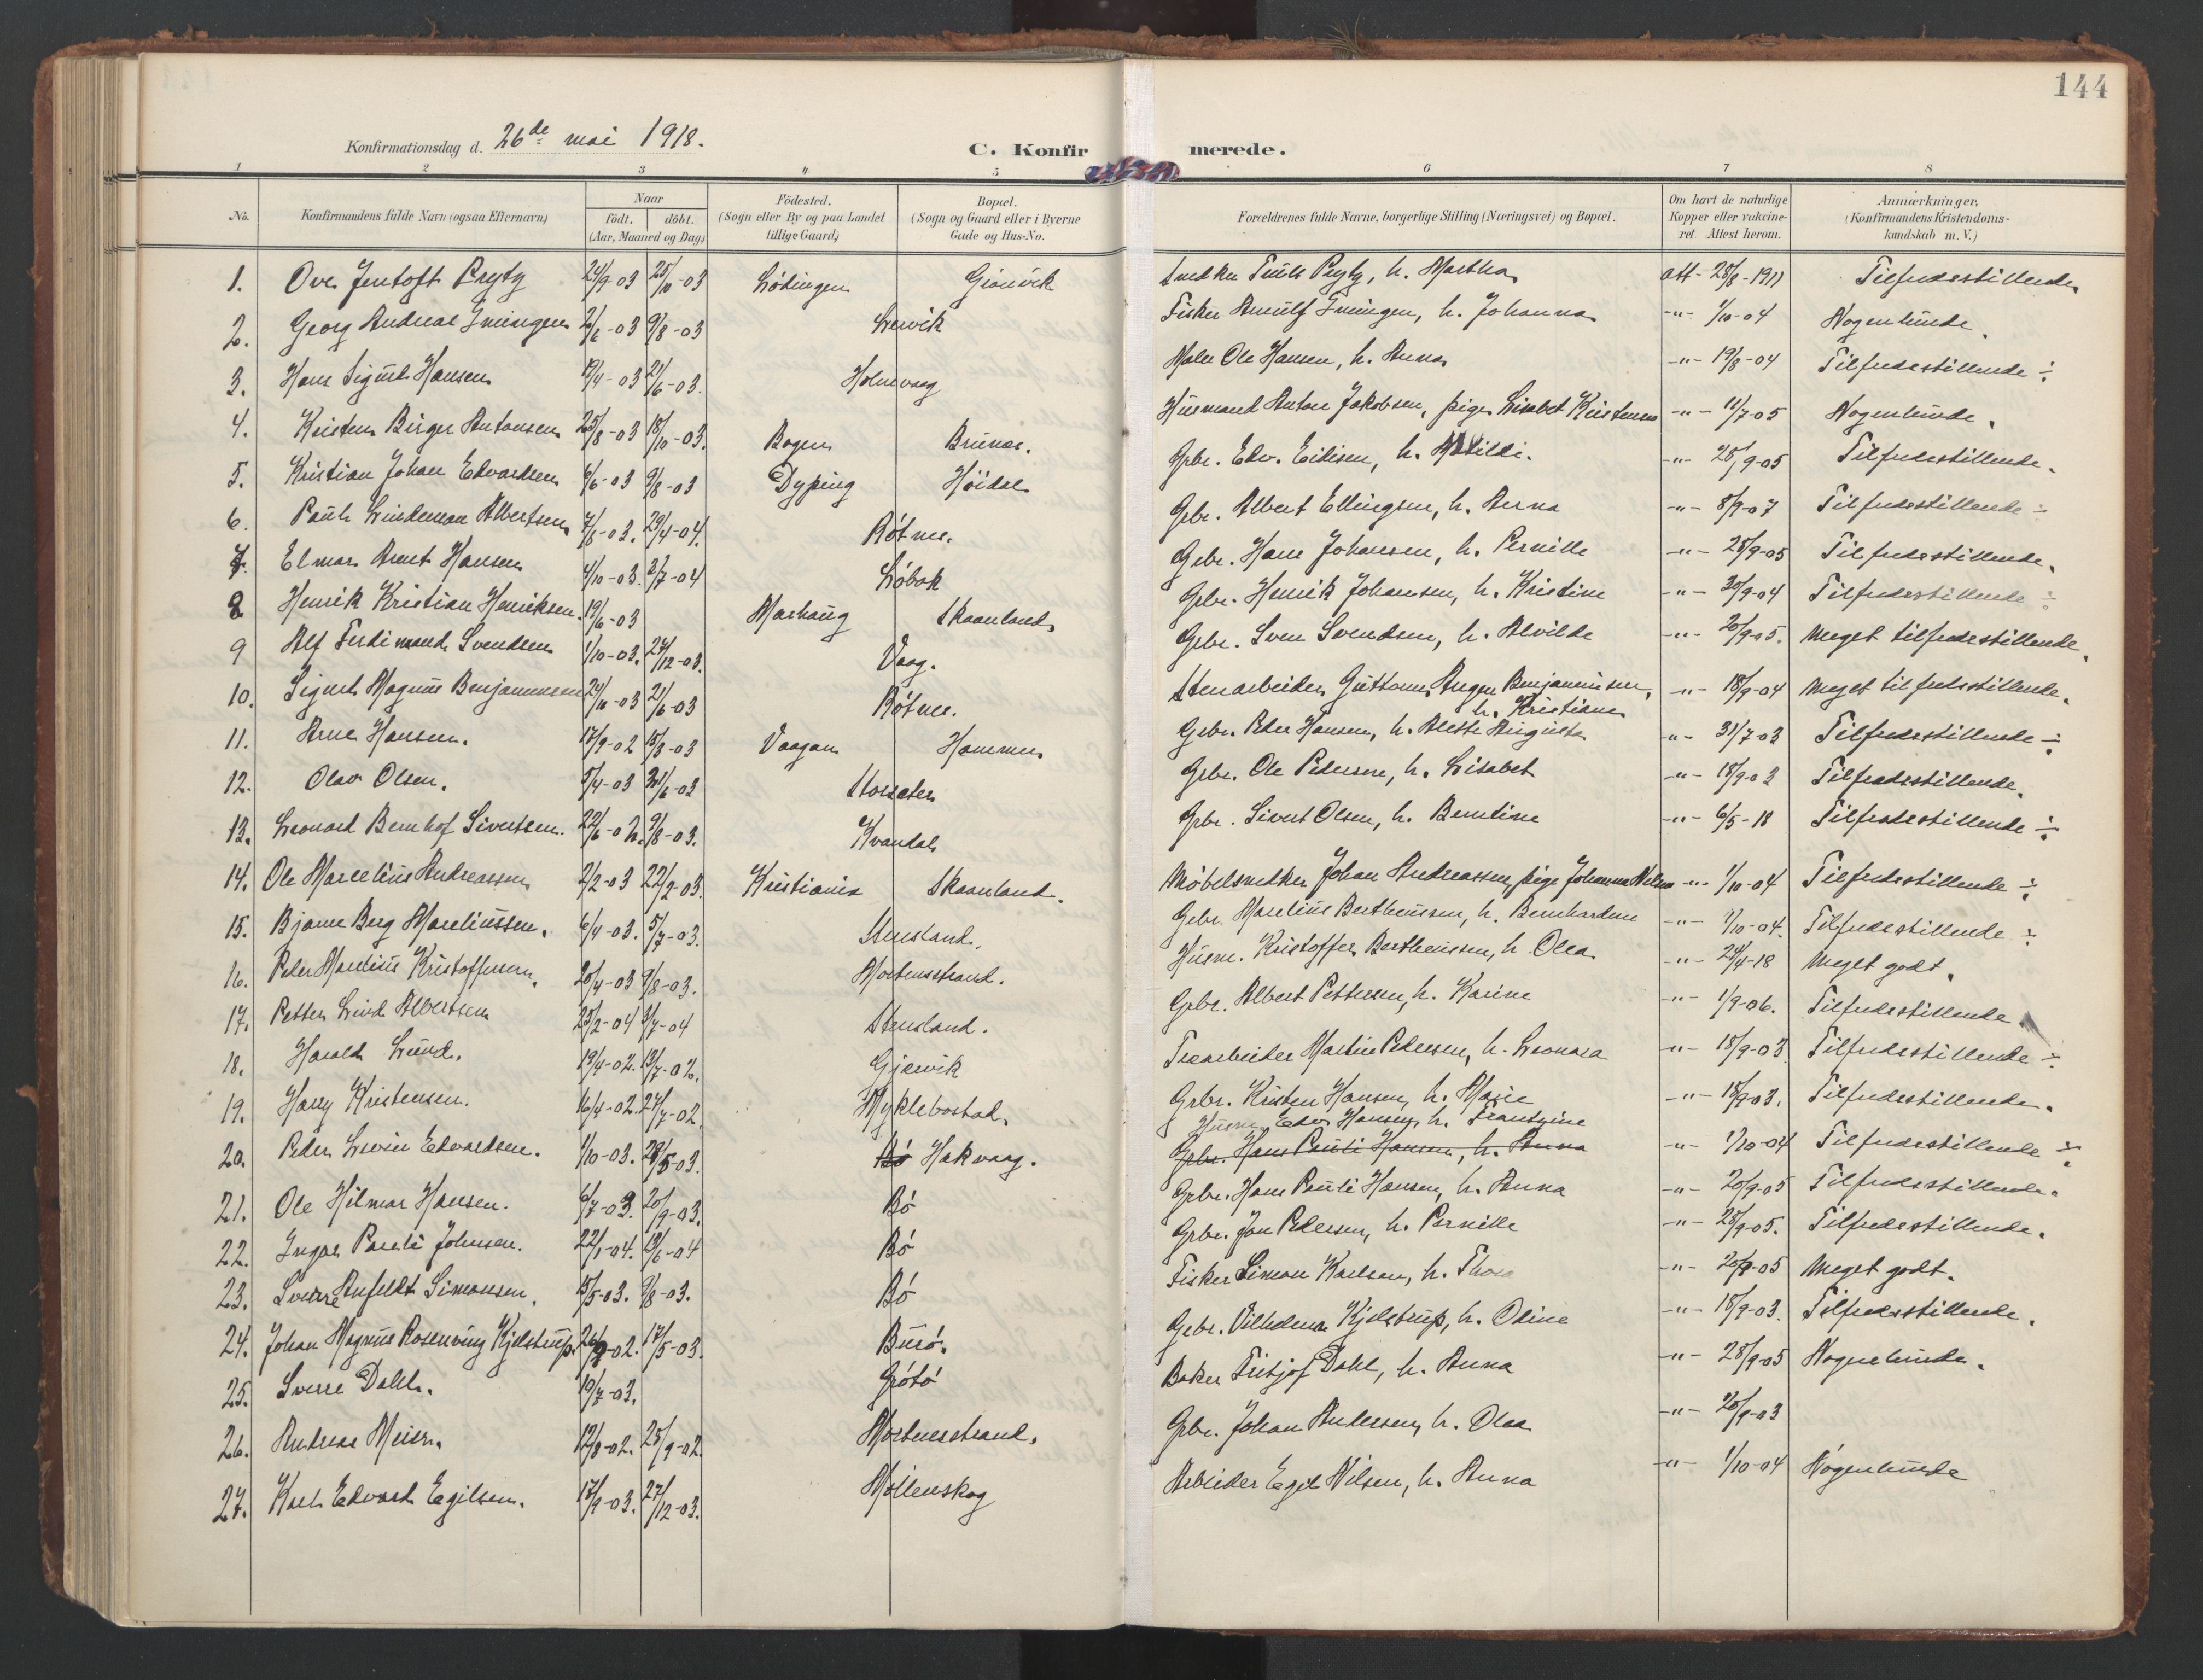 144
Konfirmationsdag d. 26de mai 1918.
C. Konfirmerede.
1 2 3 4 5 6 7 8
No.
Konfirmandens fulde Navn (ogsaa Efternavn)
Naar
födt. döbt.
(Aar, Maaned og Dag)
Födested.
(Sogn eller By og paa Landet
tillige Gaard)
Bopæl.
(Sogn og Gaard eller i Byerne
Gade og Hus-No.
Forældrenes fulde Navne, borgerlige Stilling (Næringsvei) og Bopæl.
Om havt de naturlige
Kopper eller vakcine-
ret. Attest herom.
Anmærkninger.
(Konfirmandens Kristendoms-
kundskab m. V.)
1. Ove Jentoft Prytz 24/9-03 25/10-03 Lödingen Gionvik Snedker Truls Prytz, h. Martha att- 28/8-1911 Tilfredsstillende
2. Georg Andreas 2/6-03 9/8-03 Leivik Fisker h. Johanna -"- 1/10-04 Nogenlunde.
3. Hans Sigurd Hansen 19/4-03 21/6-03. Holmvaag Maler Ole Hansen, h. Anna -"- 19/8-04 Tilfredsstillende ÷
4. Kristen Birger Antonsen 25/8-03 18/10-03. Bogen Brunes. Husmand Anton Jakobsen, pige Lisabet Kristensen -"- 11/7-05 Nogenlunde.
5. Kristian Johan Edvardsen 6/6-03 9/8-03 Dyping Höidal Gbr. Edv. Eidisen, h. Matildi. -"- 28/9-05 Tilfredsstillende.
6. Pauls Lindeman Albertsen 7/6-03. 29/4-04. Rötnes. Gbr. Albert Ellingsen, h. Anna -"- 8/9-07 Tilfredsstillende ÷
7. Elmar Arnt Hansen 4/10-03. 3/7-04 Löbak Gbr. Hans Johansen, h. Pernille -"- 28/9-05 Tilfredsstillende.
8 Henrik Kristian Henriksen. 19/6-03 Marhaug Skaanland Gbr. Henrik Johansen, h. Kristine -"- 30/9-04 Tilfredsstillende ÷
9 Alf Ferdinand Svendsen 1/10-03. 27/12-03. Vaag. Gbr. Sven Svendsen, h. Alvilde -"- 20/9-05. Meget tilfredsstillende.
10. Sigurd Magnus Benjaminsen 24/10-03 21/6-03 Rötnes. Stenarbeider Guttorm Angen Benjaminsen, -"- 18/9-04 Meget tilfredsstillende.
h. Kristiane
11. Arne Hansen. 17/9-02 15/3-03 Vaagan Hammer Gbr. Peder Hansen, h. Alette Augusta -"- 31/7-03 Tilfredsstillende ÷
12. Olav Olsen. 5/4-03 21/6-03 Storseter Gbr. Ole Pedersen, h. Lisabet -"- 18/9-03 Tilfredsstillende.
13. Leonard Bernhof Sivertsen. 22/6-02. 9/8-03. Kvandal Gbr. Sivert Olsen, h. Berntine -"- 6/5-18 Tilfredsstillende ÷
14. Ole Marcelius Andreassen 2/2-03 22/2-03. Kristiania Skaanland. Möbelsnedker Johan Andreassen, pige Johanna Nilsen -"- 1/10-04 Tilfredsstillende ÷
15. Bjarne Berg Mareliussen. 6/4-03. 5/7-03. Stensland. Gbr. Marelius Bertheussen, h. Bernhardine -"- 1/10-04. Tilfredsstillende ÷
16. Peder Martinus Kristoffersen. 20/4-03 9/8-03. Mortensstrand. Husm. Kristoffer Bertheussen, h. Olea -"- 24/4-18 Meget godt.
17. Petter Lind Albertsen 25/2-04 3/7-04 Stensland. Gbr. Albert Pettersen, h. Karine -"- 1/9-06. Tilfredsstillende.
18. Harald Lund. 19/4-02. 13/7-02. Gjervik Træarbeider Martin Pedersen, h. Leonora -"- 18/9-03 Tilfredsstillende ÷
19. Harry Kristensen. 16/4-02. 27/7-02. Myklebostad. Gbr. Kristen Hansen, h. Marie -"- 18/9-03. Tilfredsstillende.
Husm. Edv. Hansen, h. Frantzine
20. Peder Lewin Edvardsen. 1/10-03. 28/5-03. Bö Hakvaag. Gbr. Hans Pauli Hansen, h. Anna -"- 1/10-04 Tilfredsstillende ÷
21. Ole Hilmar Hansen. 6/7-03. 20/9-03. Bö Gbr. Hans Pauli Hansen, h. Anna -"- 20/9-05 Tilfredsstillende.
22. Ingar Pauli Johnsen. 22/1-04. 19/6-04 Bö Gbr. Jon Pedersen, h. Pernille -"- 28/9-05. Tilfredsstillende.
23. Sverre Anfeldt Simonsen. 15/5-03. 9/8-03. Bö Fisker Simon Karlsen, h. Thora -"- 20/9-05 Meget godt.
24. Johan Magnus Rosenving Kjelstrup. 26/9-02. 17/5-03. Burö. Gbr. Vilhelm Kjelstrup, h. Odine -"- 18/9-03. Tilfredsstillende.
25. Sverre Dahl. 10/7-03. Grötö Baker Fritjof Dahl, h. Anna -"- 28/9-05 Nogenlunde.
26. Andreas Meier. 12/8-02. 25/9-02. Mortensstrand. Gbr. Johan Andersen, h. Olea -"- 20/9-03
27. Karl Edvard Egilsen. 17/9-03. 27/12-03. Möllenskog Arbeider Egil Nilsen, h. Anna -"- 1/10-04 Nogenlunde